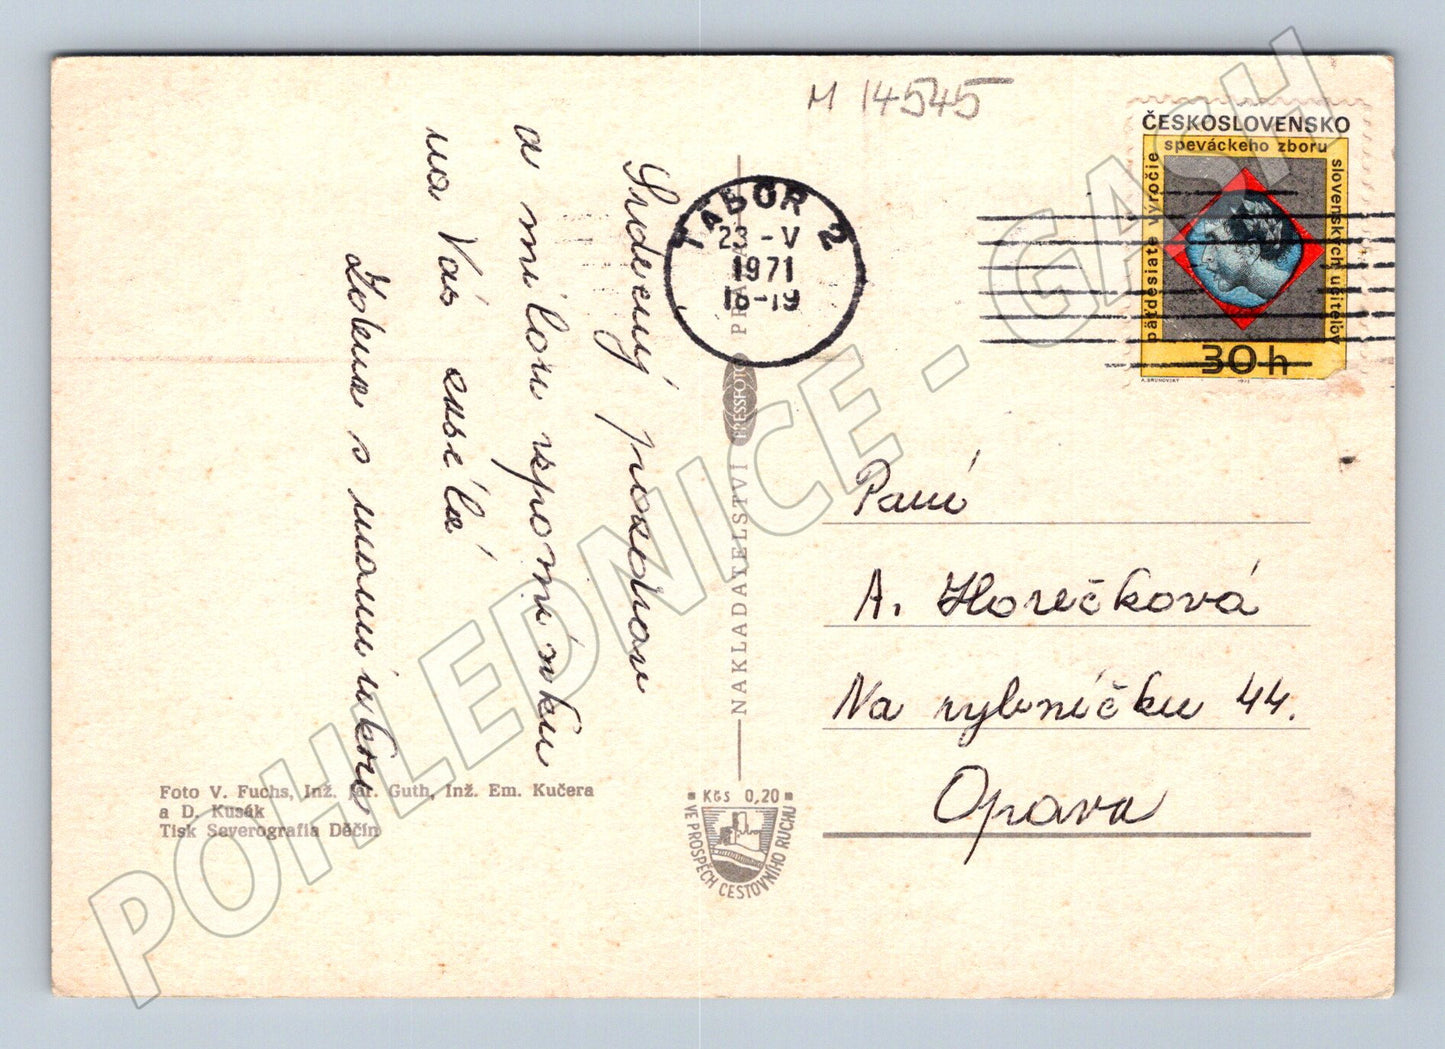 M 14545
ČESKOSLOVENSKO
speváckeho zboru
slovenských učiteľov
päťdesiate výročie
30 h
A. BRUNOVSKÝ 1971
TÁBOR 2
23 -V
1971
18-19
Srdečný pozdrav
a milou vzpomínku
na Vás zasílá
s maminkou
NAKLADATELSTVÍ PRESSFOTO PRAHA
Paní
A. Horečková
Na rybníčku 44.
Opava
Foto V. Fuchs, Inž. Jar. Guth, Inž. Em. Kučera
a D. Kusák
Tisk Severografia Děčín
Kčs 0,20
VE PROSPĚCH CESTOVNÍHO RUCHU
POHLEDNICE - GASH